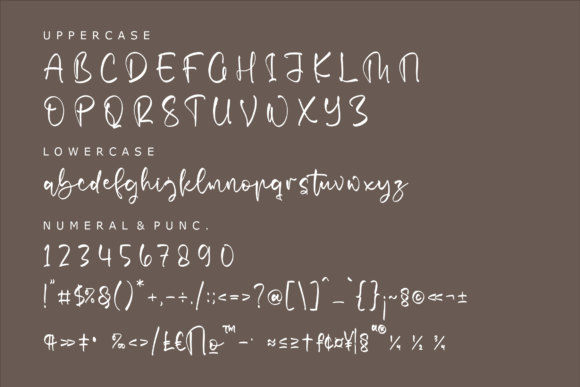 UPPERCASE
ABCDEFGHIJKLMN
OPQRSTUVWXYZ
LOWERCASE
abcdefghijklmnopqrstuvwxyz
NUMERAL & PUNC.
1234567890
!"#$%&()*+,-÷./:;<=>?@[\]^_`{}¡~§©«¬±
¶»‡• ‰<>/£€∏º™–· ≈≤≥†ƒ¢¤¥|§ª®¼ ½ ¾